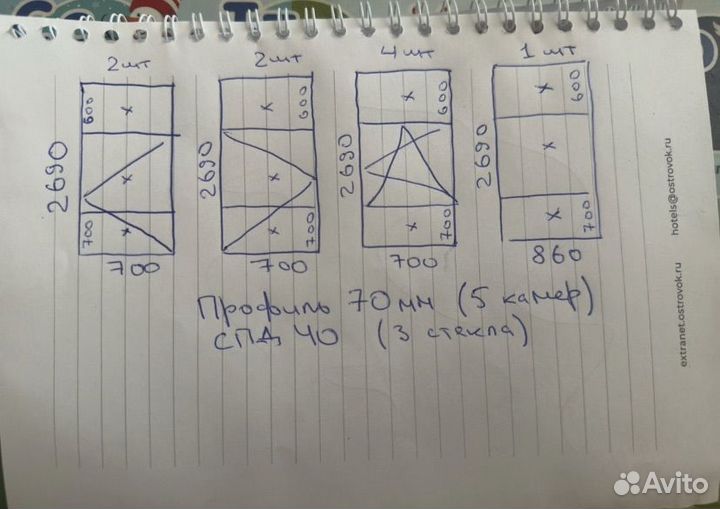 2шт 2шт 4шт 1шт
600 600 600 600
2690 2690 2690 2690
700 700 700 700
700 700 700 860
Профиль 70мм (5 камер)
СПД 40 (3 стекла)
extranet.ostrovok.ru hotels@ostrovok.ru
Avito